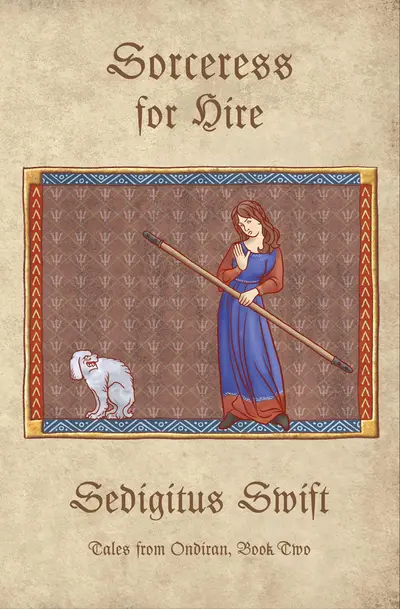 Sorceress
for Hire
Sedigitus Swift
Tales from Ondiran, Book Two